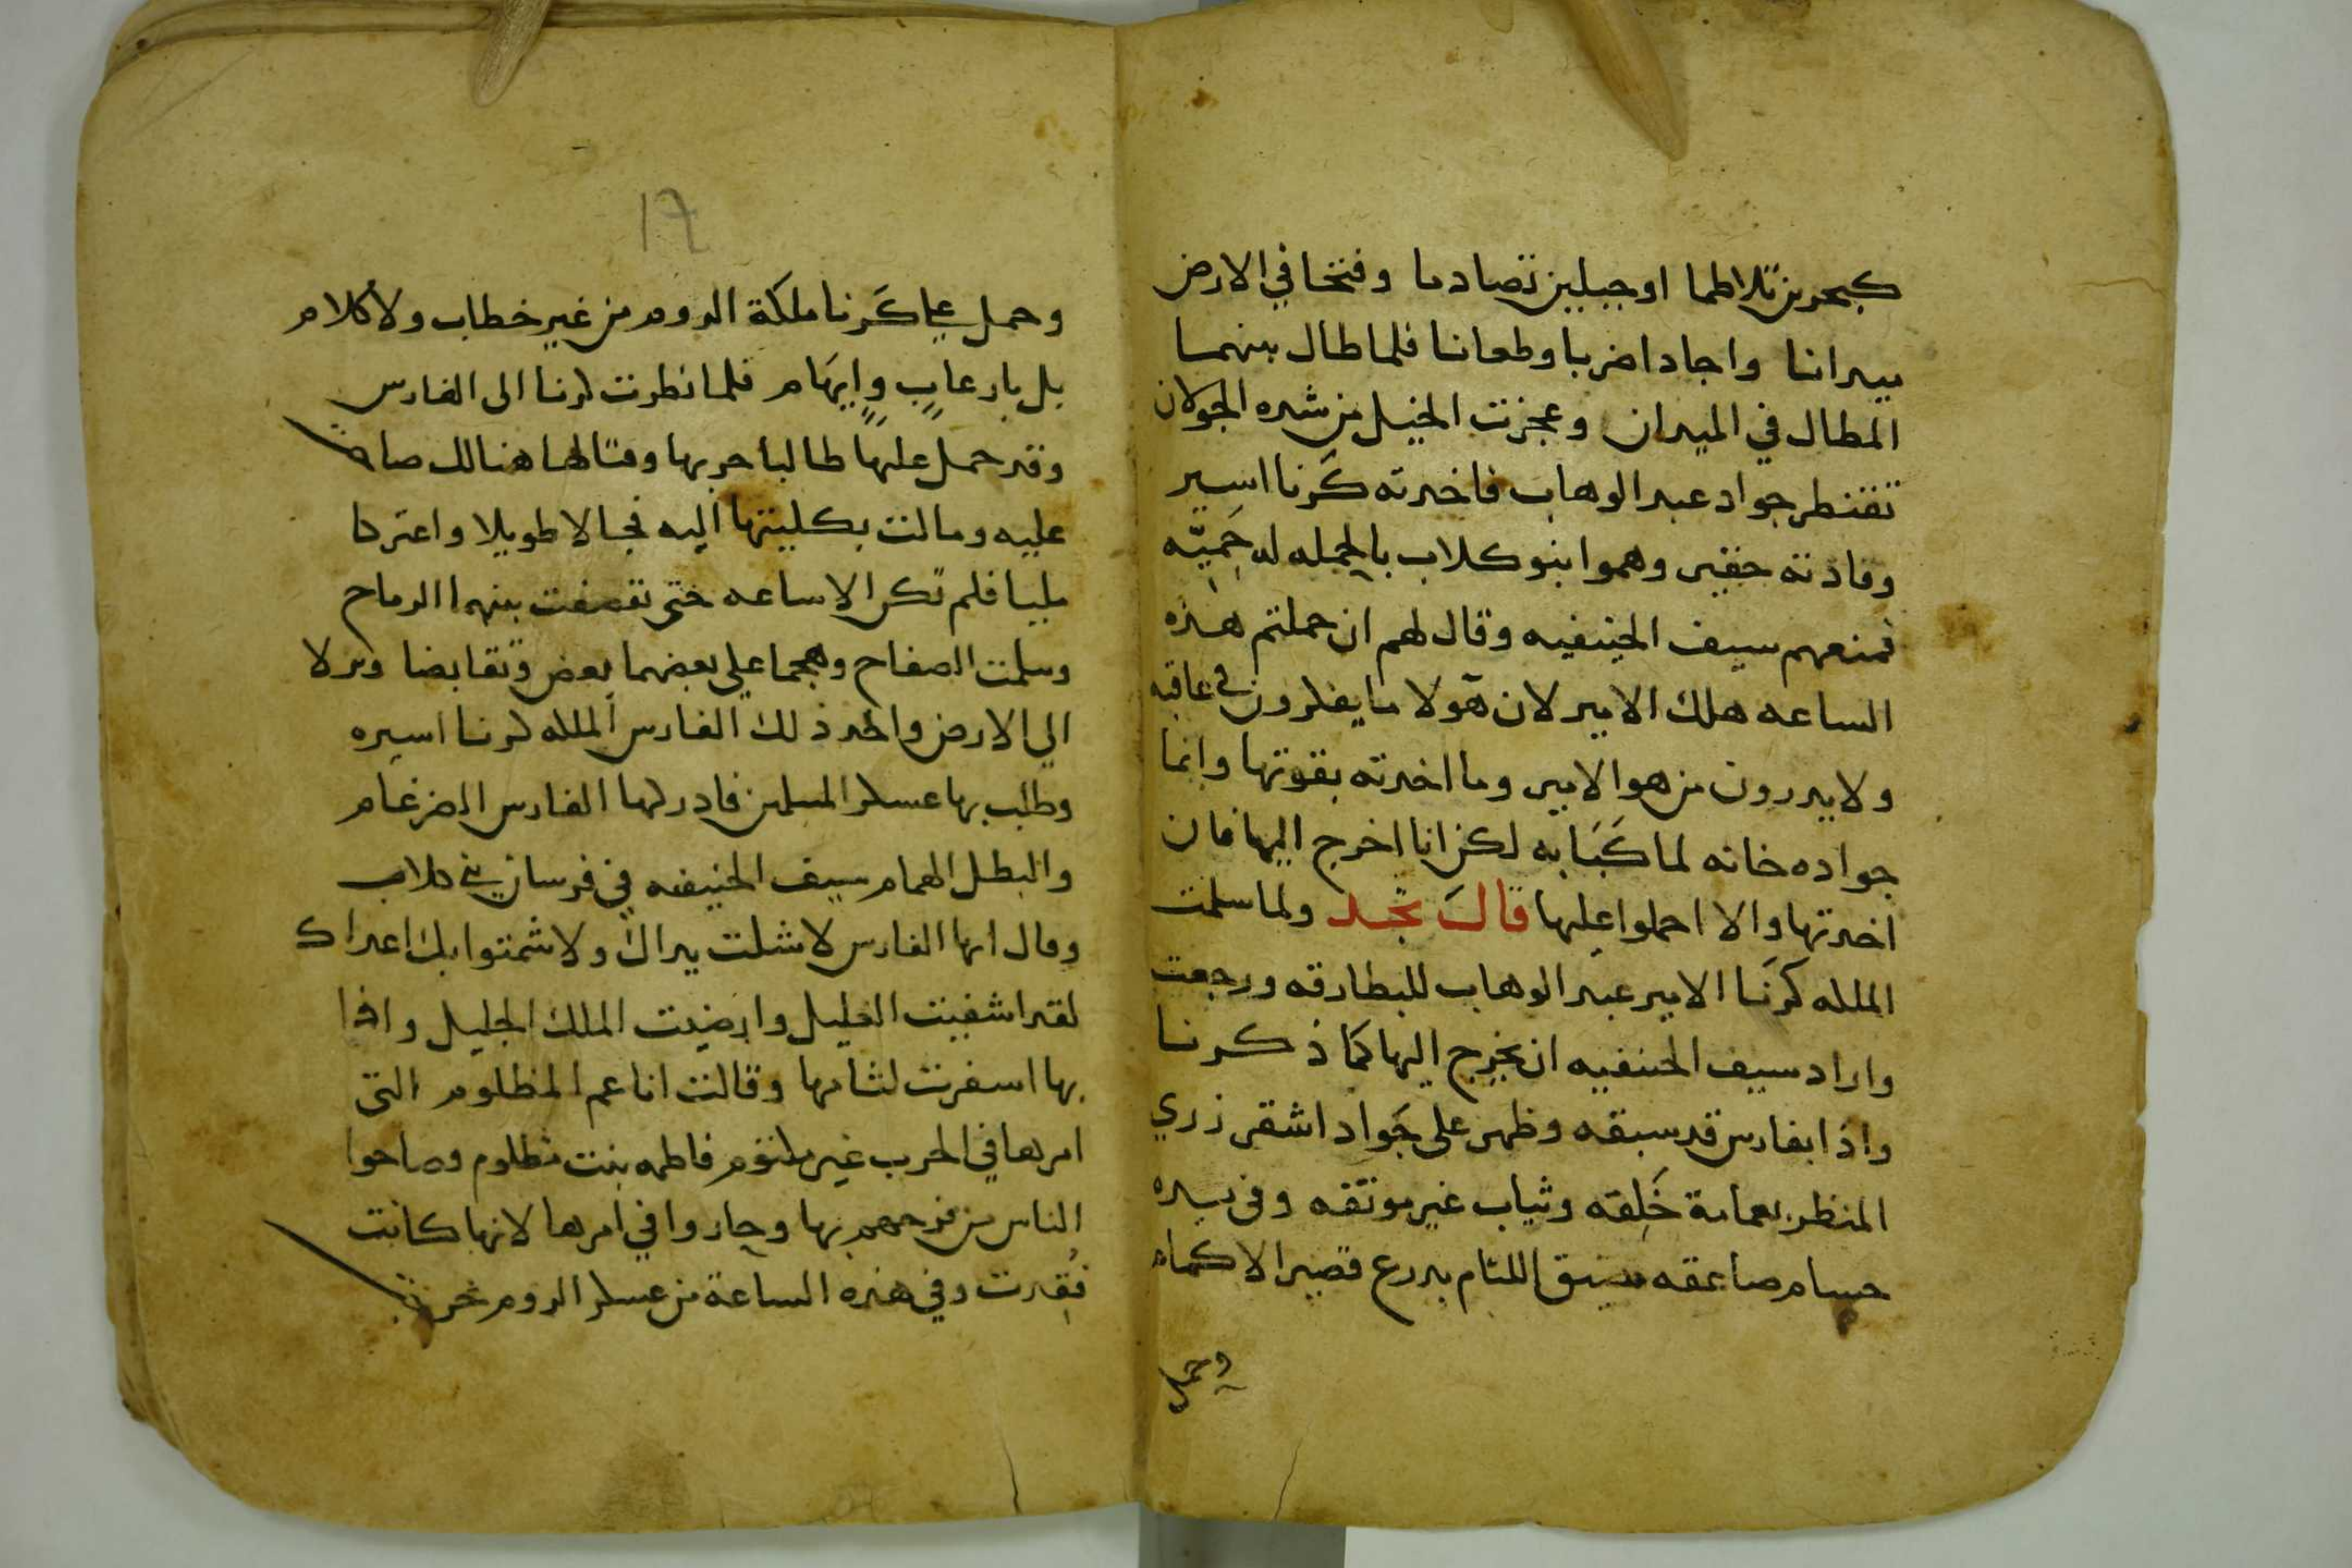 كبحرين تلاطما او جبلين تصادما وفتخا في الارض
ميدانا واجادا ضربا وطعانا فلما طال بينهما
المطال في الميدان وعجزت الخيل من شده الجولان
تقنطر جواد عبد الوهاب فاخدته كَرنا اسير
وقادته حقير وهموا بنو كلاب بالحمله له حَميّه
فمنعهم سيف الحنيفيه وقال لهم ان حملتم هذه
الساعه هلك الامير لان هولا ما يفكرون في عاقبه
ولا يدرون من هو الامير وما اخدته بقوتها وانما
جواده خانه لما كَبَا به لكن انا اخرج اليها فان
اخدتها والا احملوا عليها قالَ نجد ولما سلمت
الملكه كرنَا الامير عبد الوهاب للبطارقه ورجعت
واراد سيف الحنفيه ان يخرج اليها كما ذكرنا
واذا بفارس قد سبقه وظهر على جَواد اشقر زري
المنظر بعمامة خَلِقه وثياب غير موثقه وفي يده
حسام صاعقه مضيق اللثام بدرع قصير الاكمام
وحمل
١٦
وحمل علي كَرنا ملكة الروم من غير خطاب ولا كلام
بل بارعابٍ وايهَام فلما نظرت كرنا الى الفارس
وقد حمل عليها طالبا حربها وقتالها هنالك صاحت
عليه ومالت بكليتها اليه فجالا طويلا واعتركا
مليا فلم تكن الا ساعه حتى تقصفت بينهما الرماح
وسلت الصفاح وهجما علي بعضهما بعض وتقابضا ونزلا
الي الارض واخد ذلك الفارس الملكه كرنا اسيره
وطلب بها عسكر المسلمين فادركها الفارس الضرغام
والبطل الهمام سيف الحنيفه في فرسان بني كلاب
وقال ايها الفارس لا شلت يداك ولا شمتوا بك اعداك
لقد اشفيت الغليل وارضيت الملك الجليل واذا
بها اسفرت لثامها وقالت انا عم المظلوم التي
امرها في الحرب غير ملتوم فاطمه بنت مظلوم وصاحوا
الناس من فرحهم بها وحاروا في امرها لانها كانت
فُقِدت وفي هذه الساعة من عسكر الروم خرجت